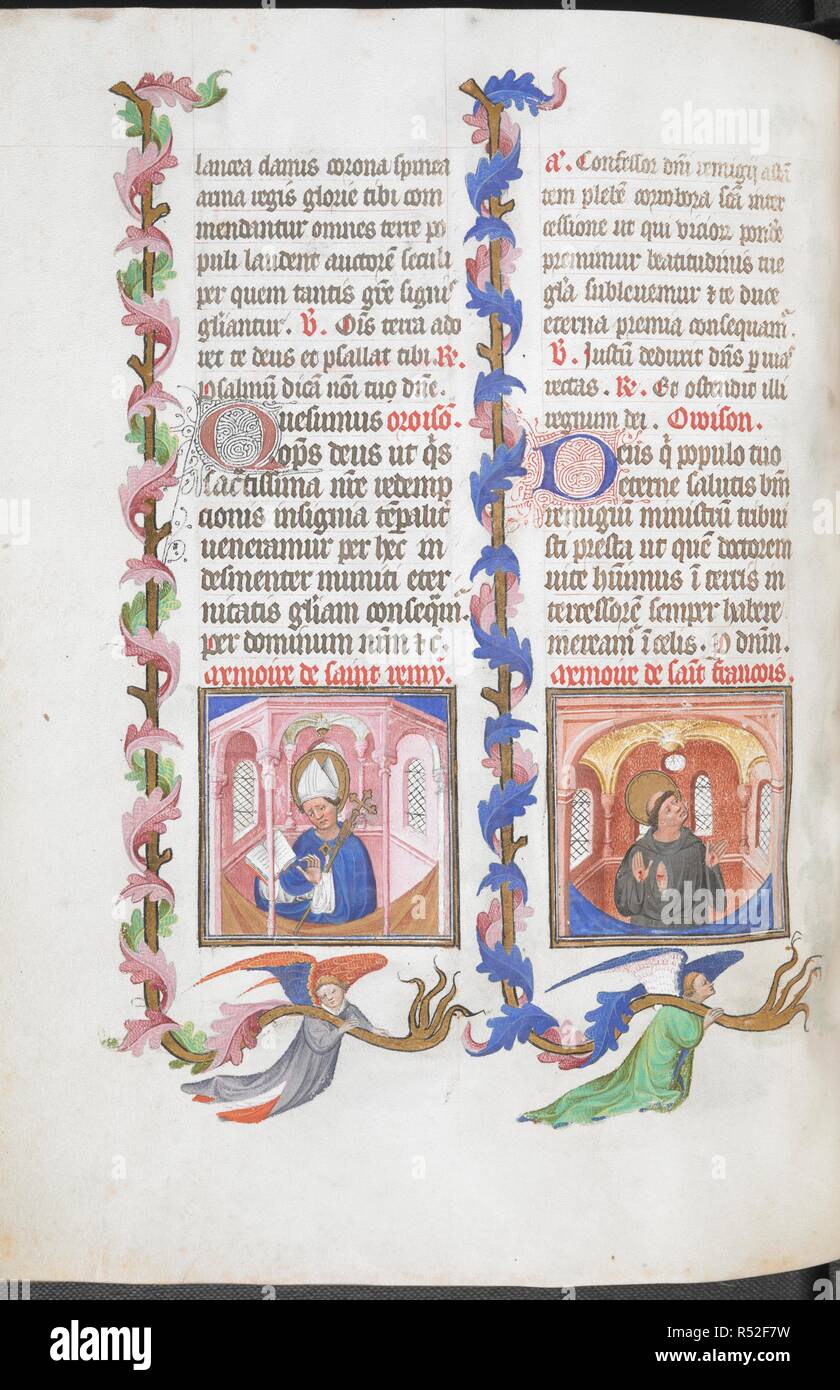 lancea clauus corona spinea
arma regis glorie tibi com
mendantur omnes terre po
puli laudent auctorē seculi
per quem tantis grē signis
gl̄iantur. V̄. Oīs terra ado
ret te deus et psallat tibi. R̄.
psalmū dicā nōi tuo dn̄e.
Quesumus oroisō.
ōps deus ut q̄s
sacr̄tissima nr̄e redemp
cionis insignia tēpalit̄
ueneramur per hec in
desinenter muniti eter
nitatis gl̄iam conseqm̄.
per dominum nr̄m ⁊ c̄.
armoire de saint remy.
a. Confessor dn̄i remigij astā
tem plebē corrobora scā inter
cessione ut qui viciorꝫ pondē
premimur beatitudinis tue
gl̄a subleuemur ⁊ te duce
eterna premia consequam̄.
V̄. Justū deduxit dn̄s p uias
rectas. R̄. Et ostendit illi
regnum dei. Oroison.
Deus q̄ populo tuo
eterne salutis bm̄
remigiū ministrū tribui
sti presta ut quē doctorem
uite hūimus ī terris in
tercessorē semper habere
meream̄ ī celis. P dn̄m.
armoire de saīt francois.
alamy
alamy
Image ID: R52F7W
www.alamy.com